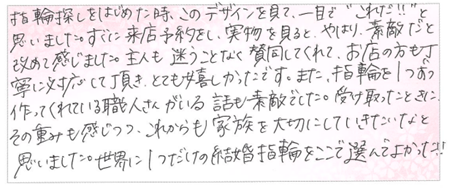 指輪探しをはじめた時、このデザインを見て、一目で"これだ!!"と
思いました。すぐに来店予約をし、実物を見ると、やはり、素敵だと
改めて感じました。主人も迷うことなく賛同してくれて、お店の方も丁
寧に対応して頂き、とても嬉しかったです。また、指輪を1つずつ
作ってくれている職人さんがいる話も素敵でした。受け取ったときに、
その重みも感じつつ、これからも家族を大切にしていきたいなと
思いました。世界に1つだけの結婚指輪をここで選んでよかった!!